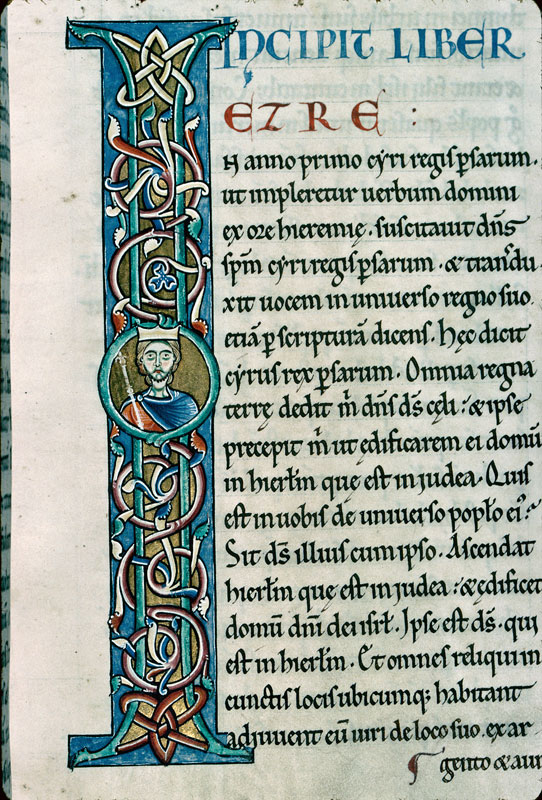 INCIPIT LIBER
ETRE :
N anno primo cyri regis psarum.
ut impleretur uerbum domini
ex ore hieremię. suscitauit dns
spm cyri regis psarum. & tnsdu
xit uocem in uniuerso regno suo.
etiā p scripturā dicens. Hęc dicit
cyrus rex psarum. Omnia regna
terrę dedit m dns ds cęli: & ipse
precepit m ut ędificarem ei domū
in hierlm que est in judea. Quis
est in uobis de uniuerso poplo ei?
Sit ds illius cum ipso. Ascendat
hierlm que est in judea: & ędificet
domū dni dei isrl. Ipse est ds. qui
est in hierlm. Et omnes reliqui in
cunctis locis ubicumq; habitant
adjuuent eū uiri de loco suo. ex ar
gento & aur